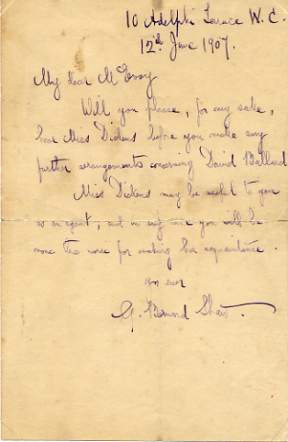 10 Adelphi Terrace W. C.
12th June 1907.
My dear McEvoy
Will you please, for my sake,
hear Miss Dickens before you make any
further arrangements concerning David Ballard
Miss Dickens may be useful to you
as an agent, and in any case you will be
none the worse for making her acquaintance.
yrs ever
G. Bernard Shaw.